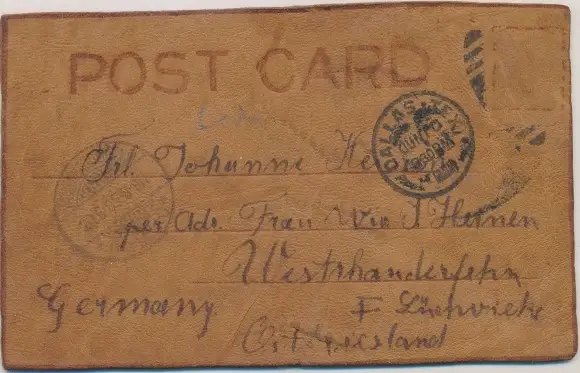 POST CARD
DALLAS, TEX.
JUN
Frl. Johanne He
per Adr. Frau Ww J Heinen
Westrhanderfehn
Germany
Ostfriesland